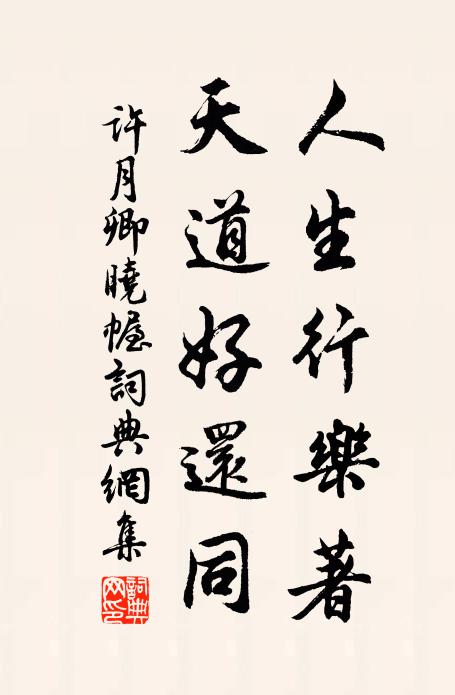 人生行樂著
天道好還同
許月卿曉幄詞典網集
詞典網印